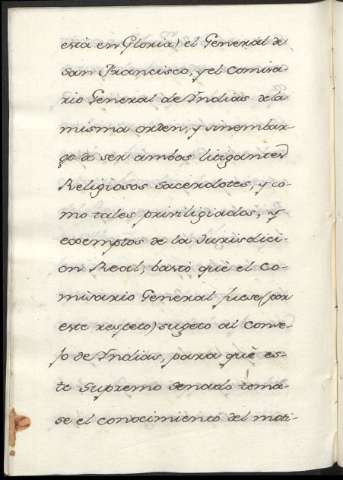 está en Gloria) el General de
San Francisco, y el Comisa-
rio General de Indias de la
misma orden, y sinembar-
go de ser ambos litigantes
Religiosos sacerdotes, y co-
mo tales priviligiados, y
exemptos de la Jurisdici-
on Real, bastó què el Co-
misario General fuese (por
este respeto) sugeto al Conse-
jo de Indias, para què es-
te Supremo Senado toma-
se el conocimiento del moti-